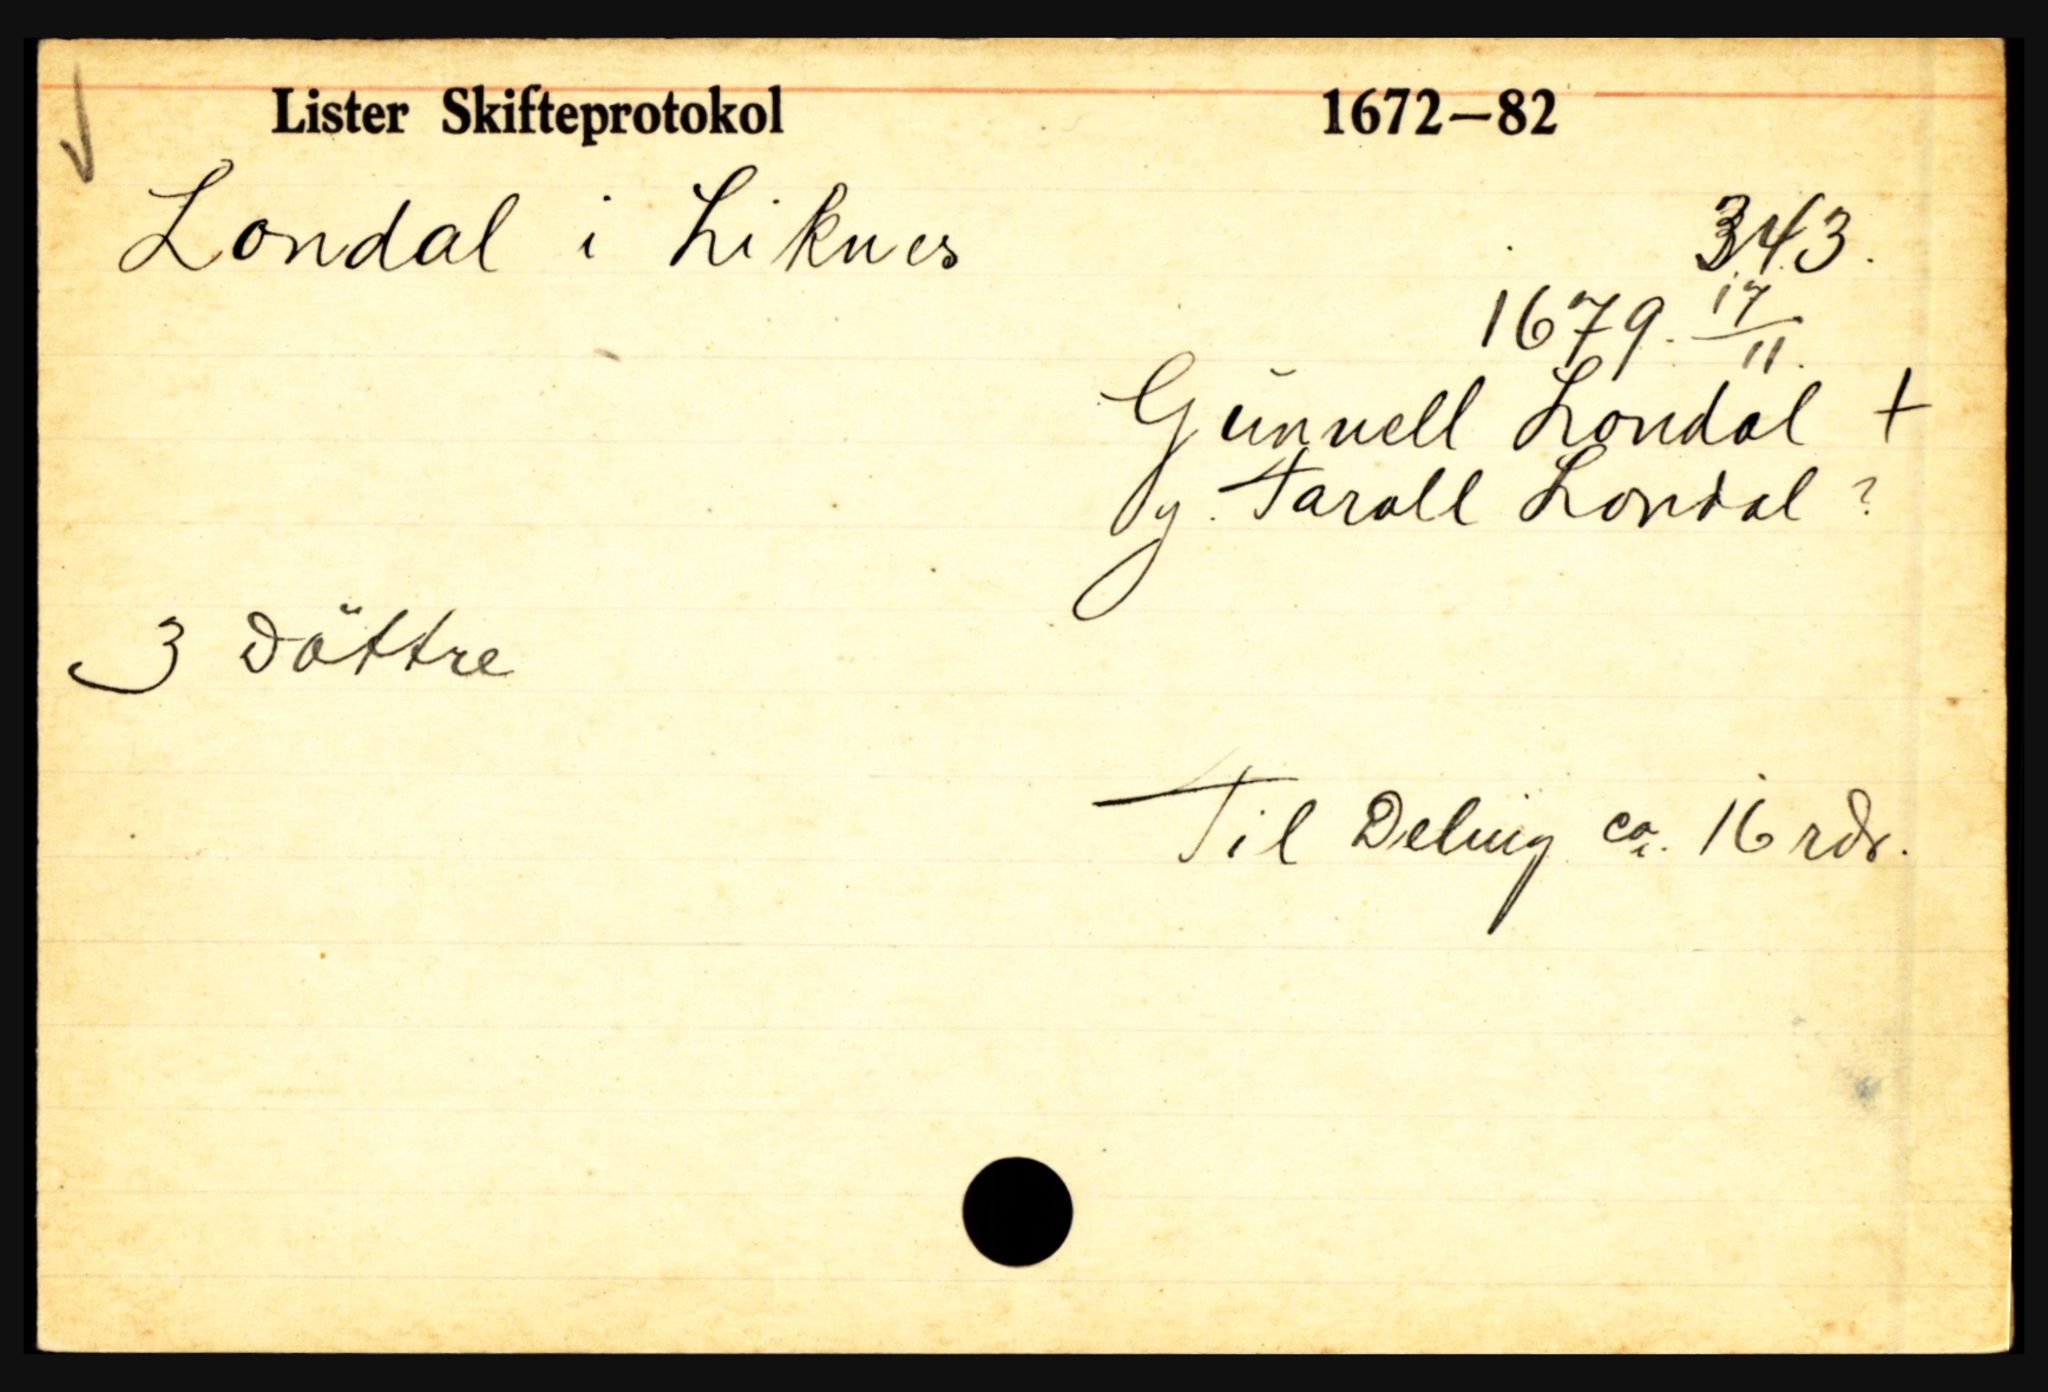 Lister Skifteprotokol 1672—82
Londal i Liknes 343.
1679. 17/11.
Gunnell Londal +
g. Taroll Londal ?
3 döttre
Til Deling ca. 16 rdr.